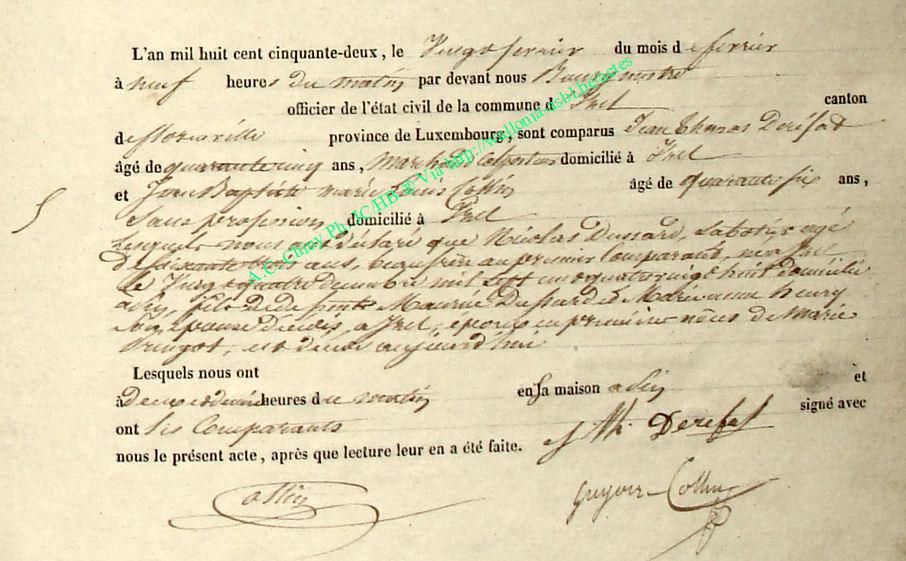 L'an mil huit cent cinquante-deux, le Vingt février du mois de février
à neuf heures du matin par devant nous Bourgmestre
officier de l'état civil de la commune d Izel canton
de Florenville province de Luxembourg, sont comparus Jean Thomas
âgé de quarante cinq ans, Marchand Colporteur domicilié à Izel
et Jean Baptiste marie Louis Collin âgé de quarante six ans,
Sans profession domicilié à Izel
Lesquels nous ont déclaré que Nicolas Dussard, Sabotier agé
de soixante trois ans, beaufrère au premier Comparant, né a Izel
le Vingt quatre mil sept cent quatre vingt huit domicilié
a, fils de Maurice Dussard et Marie anne henry
son épouse décédés, a Izel, époux en premières nôces de Marie
, est décédé aujourd'hui
Lesquels nous ont
à deux et demie heures du matin en sa maison a et
ont Les Comparants signé avec
nous le présent acte, après que lecture leur en a été faite.
J Th.
Collin Collin
A.C. Chiny Ph JC/HB @ Via http://wallonia-asbl.be/actes